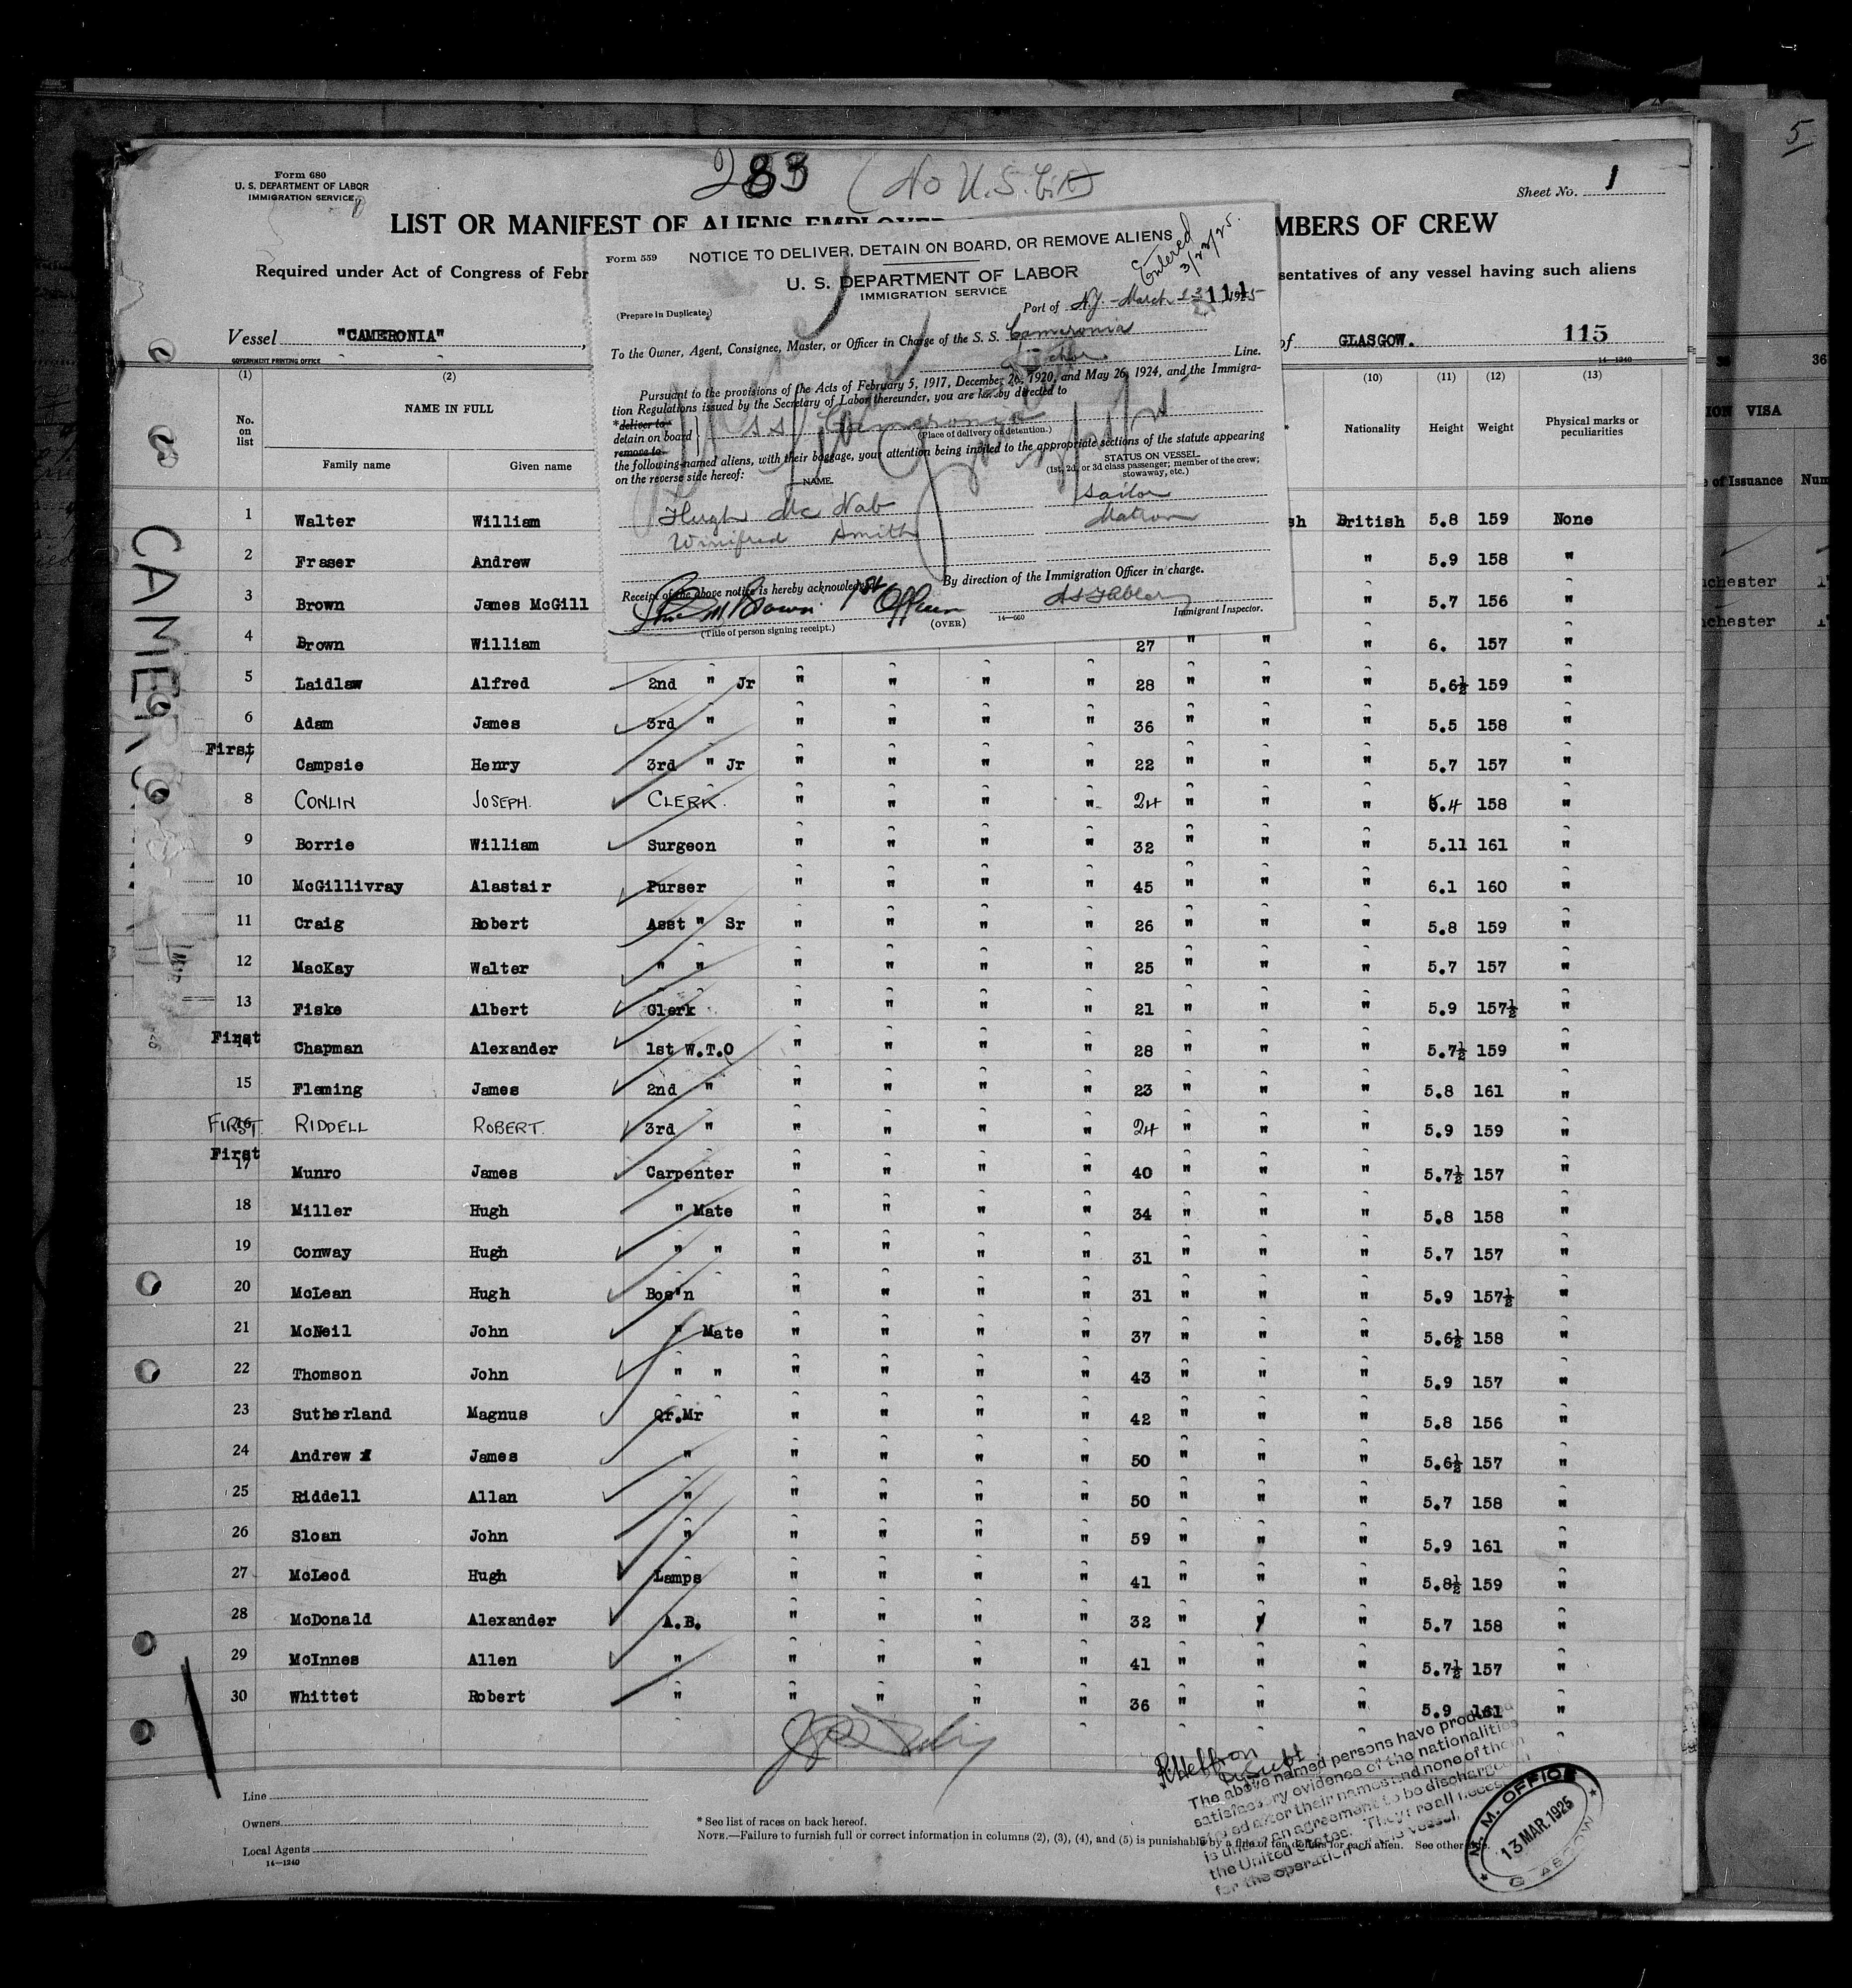 5
283 (No U.S. Cit)
Form 680
U. S. DEPARTMENT OF LABOR
IMMIGRATION SERVICE
Sheet No. 1
LIST OR MANIFEST OF ALIENS EMPLOYED
MBERS OF CREW
Required under Act of Congress of Febr
sentatives of any vessel having such aliens
Vessel "CAMERONIA"
of GLASGOW.
115
GOVERNMENT PRINTING OFFICE
14—1240
Form 559
NOTICE TO DELIVER, DETAIN ON BOARD, OR REMOVE ALIENS
Entered 3/23/25.
U. S. DEPARTMENT OF LABOR
IMMIGRATION SERVICE
(Prepare in Duplicate)
Port of N.Y. - March 23 1925
111
To the Owner, Agent, Consignee, Master, or Officer in Charge of the S. S. Cameronia
Anchor Line.
Pursuant to the provisions of the Acts of February 5, 1917, December 26, 1920, and May 26, 1924, and the Immigra-
tion Regulations issued by the Secretary of Labor thereunder, you are hereby directed to
*deliver to
detain on board
remove to
SS Cameronia
(Place of delivery or detention.)
the following-named aliens, with their baggage, your attention being invited to the appropriate sections of the statute appearing
on the reverse side hereof:
NAME.
STATUS ON VESSEL
(1st, 2d, or 3d class passenger; member of the crew; stowaway, etc.)
Hugh McNab Sailor
Winifred Smith Matron
Receipt of the above notice is hereby acknowledged
By direction of the Immigration Officer in charge.
Brown 1st Officer
(Title of person signing receipt.)
(OVER)
14—660
Immigrant Inspector.
(1) (2) (10) (11) (12) (13)
No. on list
NAME IN FULL
Family name Given name
Nationality Height Weight Physical marks or peculiarities
1 Walter William sh British 5.8 159 None
2 Fraser Andrew " 5.9 158 "
3 Brown James McGill " 5.7 156 "
4 Brown William 27 " " " 6. 157 "
5 Laidlaw Alfred 2nd " Jr " " " " 28 " " " 5.6½ 159 "
6 Adam James 3rd " " " " " 36 " " " 5.5 158 "
First 7 Campsie Henry 3rd " Jr " " " " 22 " " " 5.7 157 "
8 CONLIN JOSEPH. CLERK. " " " " 24 " " " 5.4 158 "
9 Borrie William Surgeon " " " " 32 " " " 5.11 161 "
10 McGillivray Alastair Purser " " " " 45 " " " 6.1 160 "
11 Craig Robert Asst " Sr " " " " 26 " " " 5.8 159 "
12 MacKay Walter " " " " " " 25 " " " 5.7 157 "
13 Fiske Albert Clerk " " " " 21 " " " 5.9 157½ "
First 14 Chapman Alexander 1st W.T.O " " " " 28 " " " 5.7½ 159 "
15 Fleming James 2nd " " " " " 23 " " " 5.8 161 "
FIRST. 16 RIDDELL ROBERT. 3rd " " " " " 24 " " " 5.9 159 "
First 17 Munro James Carpenter " " " " 40 " " " 5.7½ 157 "
18 Miller Hugh " Mate " " " " 34 " " " 5.8 158 "
19 Conway Hugh " " " " " " 31 " " " 5.7 157 "
20 McLean Hugh Bos'n " " " " 31 " " " 5.9 157½ "
21 McNeil John " Mate " " " " 37 " " " 5.6½ 158 "
22 Thomson John " " " " " " 43 " " " 5.9 157 "
23 Sutherland Magnus Qr.Mr " " " " 42 " " " 5.8 156 "
24 Andrew James " " " " " 50 " " " 5.6½ 157 "
25 Riddell Allan " " " " " 50 " " " 5.7 158 "
26 Sloan John " " " " " 59 " " " 5.9 161 "
27 McLeod Hugh Lamps " " " " 41 " " " 5.8½ 159 "
28 McDonald Alexander A.B. " " " " 32 " " " 5.7 158 "
29 McInnes Allen " " " " " 41 " " " 5.7½ 157 "
30 Whittet Robert " " " " " 36 " " " 5.9 161 "
CAMERO
ION VISA
36
of Issuance Num
chester
chester
Line
Owners
Local Agents
14—1240
* See list of races on back hereof.
NOTE.—Failure to furnish full or correct information in columns (2), (3), (4), and (5) is punishable by a fine of ten dollars for each alien. See other
The above named persons have produced
satisfactory evidence of the nationalities
after their names and none of them
is under an agreement to be discharged in
the United States. They are all necessary
for the operation of the vessel.
M. M. OFFICE
13 MAR. 1925
GLASGOW